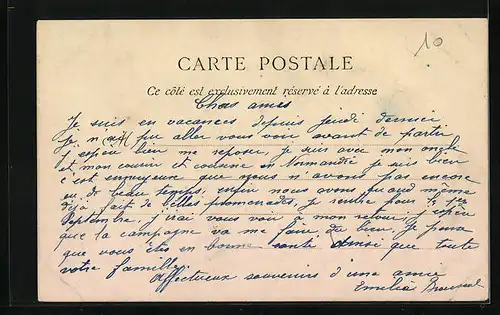 10
CARTE POSTALE
Ce côté est exclusivement réservé à l'adresse
Chers amis
Je suis en vacances depuis jeudi dernier
je n'ai pu aller vous voir avant de partir
j'espère bien me reposer, je suis avec mon oncle
et mon cousin et cousine en Normandie je suis bien
c'est ennuyeux que nous n'avons pas encore
eu de beau temps, enfin nous avons quand même
déjà fait de belles promenades, je rentre pour le 1er
Septembre, j'irai vous voir à mon retour, j'espère
que la campagne va me faire du bien. Je pense
que vous êtes en bonne santé ainsi que toute
votre famille
Affectueux souvenirs d'une amie
Emilia